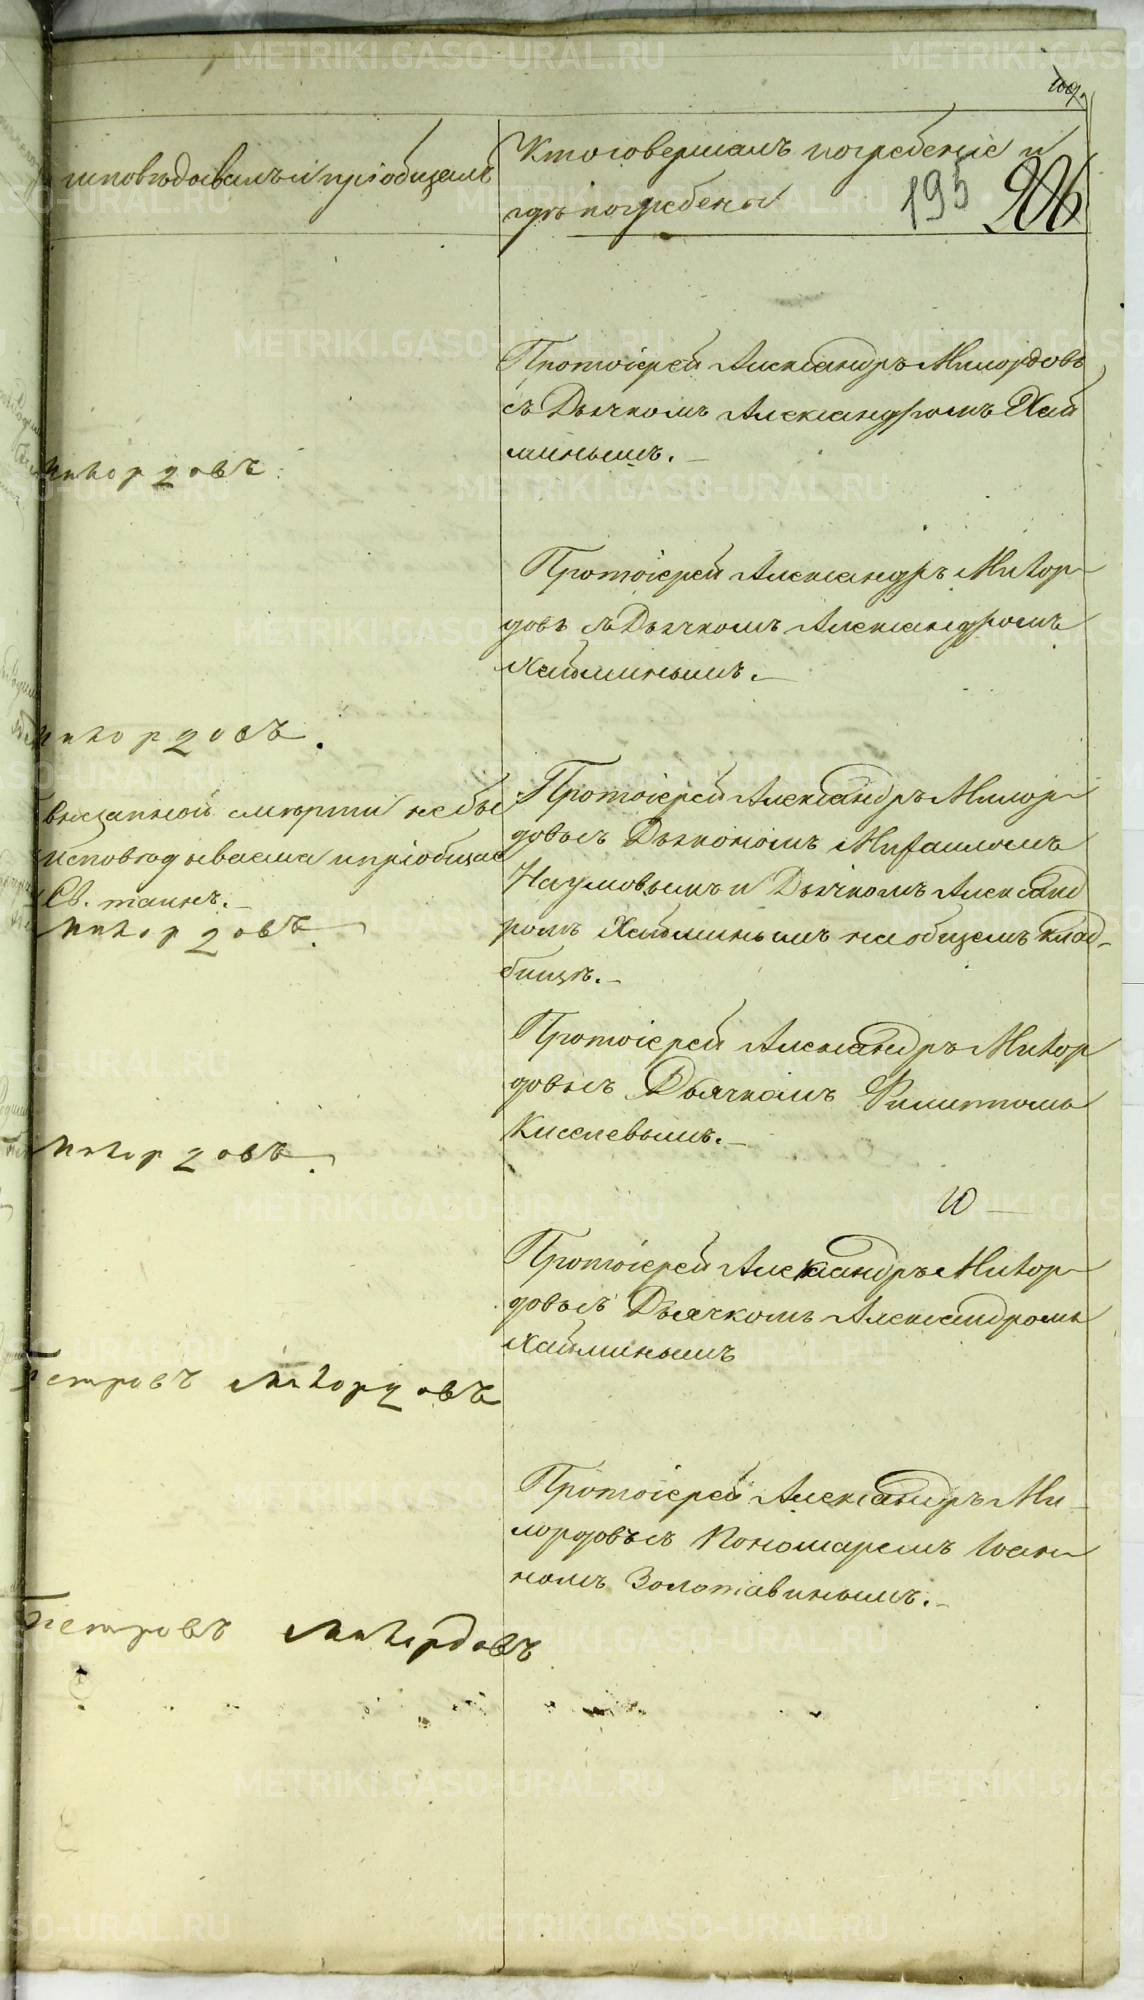 исповѣдовалъ и пріобщалъ
Кто совершалъ погребеніе и
гдѣ погребены
195
206
Протоіерей Александръ Милордовъ
съ Дьячкомъ Александромъ Хай
минымъ.
Милордовъ
Протоіерей Александръ Милор
довъ съ Дьячкомъ Александромъ
Хайминымъ.
Милордовъ.
внезапной смерти не бы
исповѣдываема и пріобщае
Св. таинъ.
Милордовъ.
Протоіерей Александръ Милор
довъ съ Дьякономъ Михаиломъ
Наумовымъ и Дьячкомъ Александ
ромъ Хайминымъ на общемъ клад-
бищѣ.
Протоіерей Александръ Милор
довъ съ Дьячкомъ Филиппомъ
Киселевымъ.
Милордовъ.
Протоіерей Александръ Милор
довъ съ Дьячкомъ Александромъ
Хайминымъ
Петровъ Милордовъ
Протоіерей Александръ Ми-
лордовъ съ Пономаремъ Іоан
номъ Золотавинымъ.
Петровъ Милордовъ
METRIKI.GASO-URAL.RU